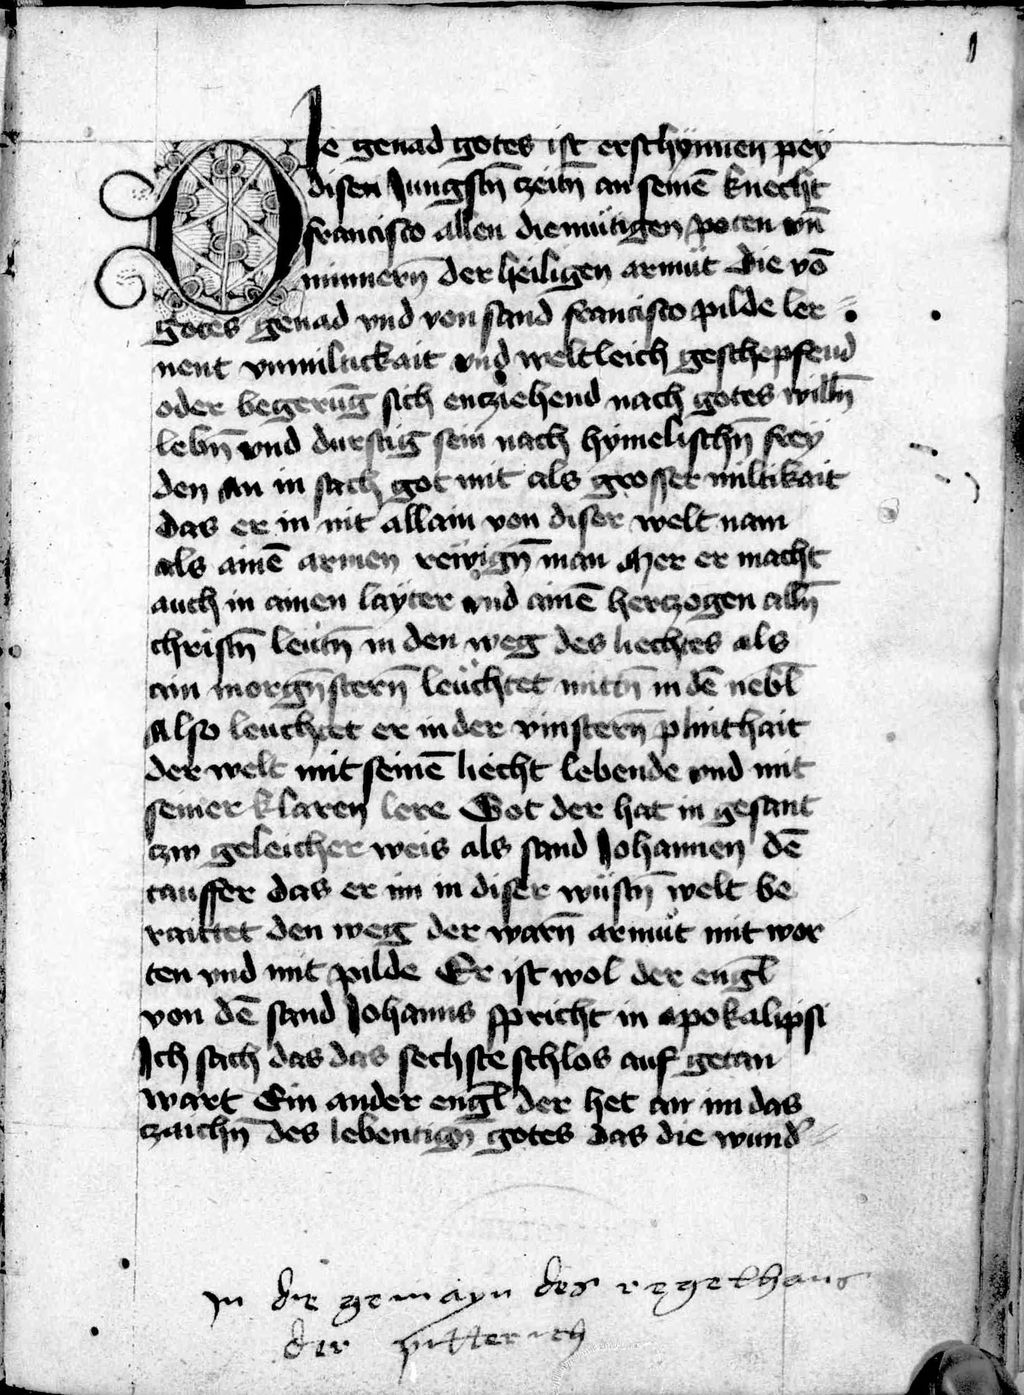 1
DIe genad gotes ist erschynnen pey
disen Jungstn̄ czeitn̄ an seinē knecht
francisco allen diemütigen poten vn̄
minnern̄ der heiligen armüt Die vō
gotes genad vnd von sand francisco pilde ler
nent vnmiltickait vnd weltleich geschepfend
oder begerūg sich encziehend nach gotes willn̄
lebn̄ vnd durstig sein nach hymelischn̄ frey
den An in sach got mit als grosser miltikait
das er in nit allain von diser welt nam
als ainē armen rewign̄ man Mer er macht
auch in ainen layter vnd ainē herczogen alln̄
christn̄ leütn̄ in den weg des liechtes als
ain morgn̄stern̄ leüchtet mittn̄ in dē nebl̄
Also leuchtet er in der vinstern̄ plinthait
der welt mit seinē liecht lebende vnd mit
seiner klaren lere Got der hat in gesant
czw geleicher weis als sand Johannen dē
tauffer das er im in diser wüstn̄ welt be
raittet den weg der warn̄ armüt mit wor
ten vnd mit pilde Er ist wol der engl̄
von dē sand Johanns spricht in apokalipsi
Ich sach das das sechste schlos auf getan
wart Ein ander engl̄ der het an im das
czaichn̄ des lebentign̄ gotes das die wund̛
In die gemayn des regelhaus
der pitterich